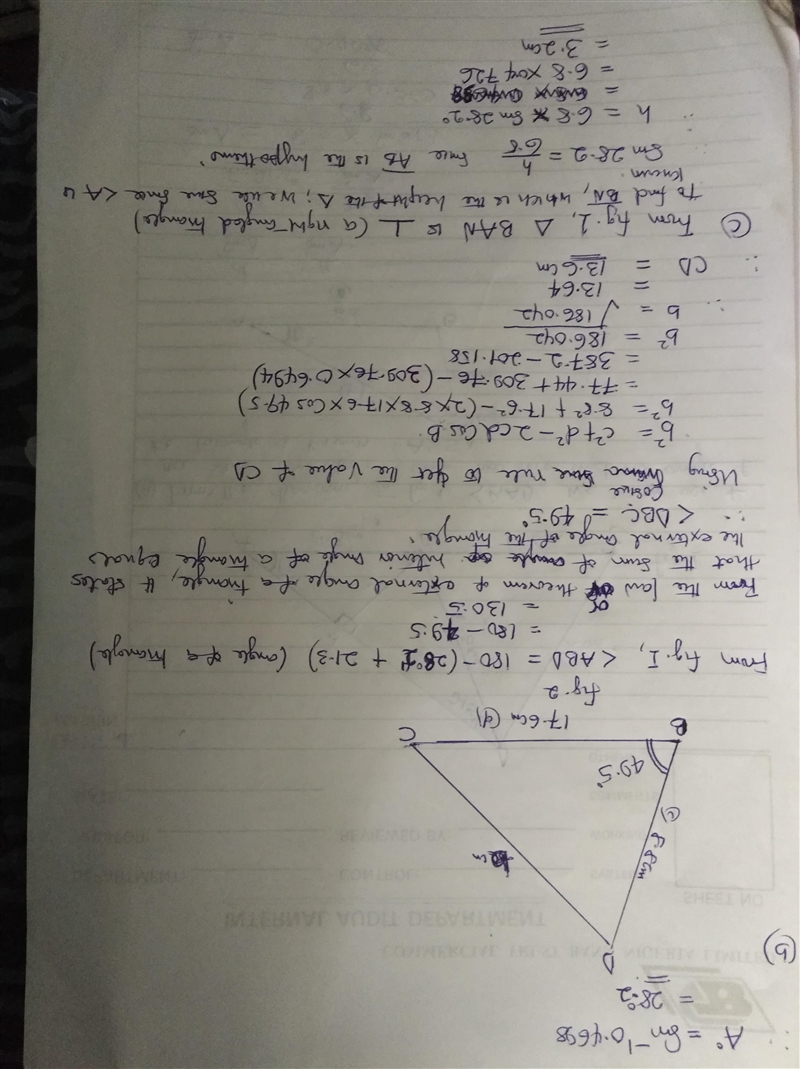 ∴ A° = Sin⁻¹ 0.4698
= 28.2°
(b)
D
8.8cm (c)
b cm
49.5°
B
C
17.6cm (d)
fig. 2
From fig. I, <ABD = 180 - (28.2 + 21.3) (angle of a triangle)
= 180 - 49.5
= 130.5
From the law or theorem of external angle of a triangle, it states
that the sum of interior angle of a triangle equals
the external angle of the triangle.
∴ <DBC = 49.5°
Using cosine rule to get the value of CD
b² = c² + d² - 2cd Cos B
b² = 8.8² + 17.6² - (2 x 8.8 x 17.6 x Cos 49.5)
= 77.44 + 309.76 - (309.76 x 0.6494)
= 387.2 - 201.158
b² = 186.042
∴ b = √186.042
= 13.64
∴ CD = 13.6cm
(c) From fig. 1, Δ BAN is ⊥ (a right angled triangle)
To find BN, which is the height of the Δ; we use sine since <A is
known
Sin 28.2 = h/6.8 since AB is the hypothenus.
∴ h = 6.8 x Sin 28.2°
= 6.8 x 0.4726
= 3.2cm
COMMERCIAL TRUST BANK NIGERIA LIMITED
INTERNAL AUDIT DEPARTMENT
SHEET NO
DEPARTMENT
CONTROL
REVIEWED BY